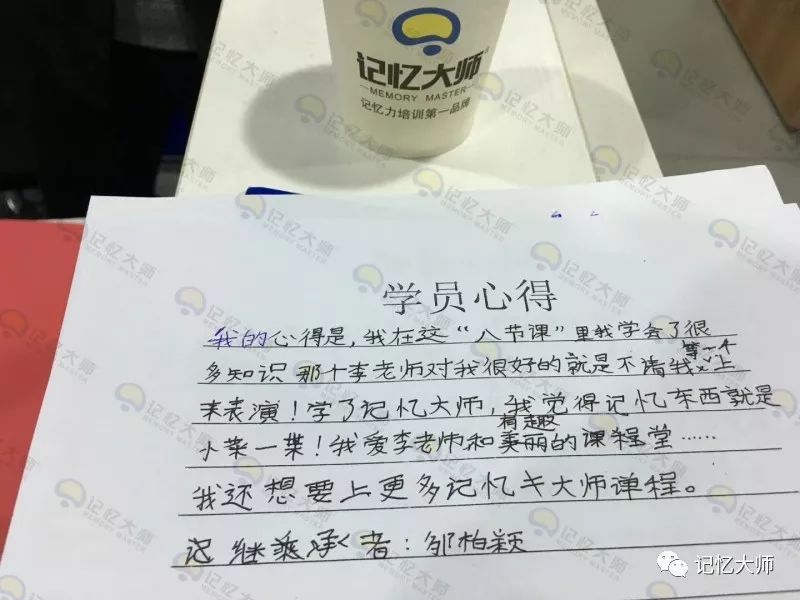 记忆大师
MEMORY MASTER
记忆力培训第一品牌
学员心得
我的心得是，我在这“八节课”里我学会了很
多知识 那个李老师对我很好的就是不请我第一个上
来表演！学了记忆大师，我觉得记忆东西就是
小菜一菜！我爱李老师和有趣美丽的课程堂……
我还想要上更多记忆大师课程。
继承者：邹柏颖
记忆大师